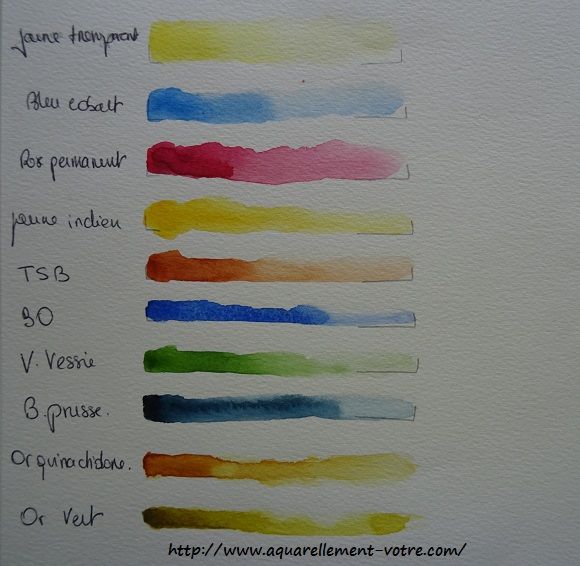 Jaune transparent
Bleu cobalt
Ros permanent
jaune indien
TSB
BO
V. Vessie
B. prusse.
Or quinachidone.
Or Vert
http://www.aquarellement-votre.com/